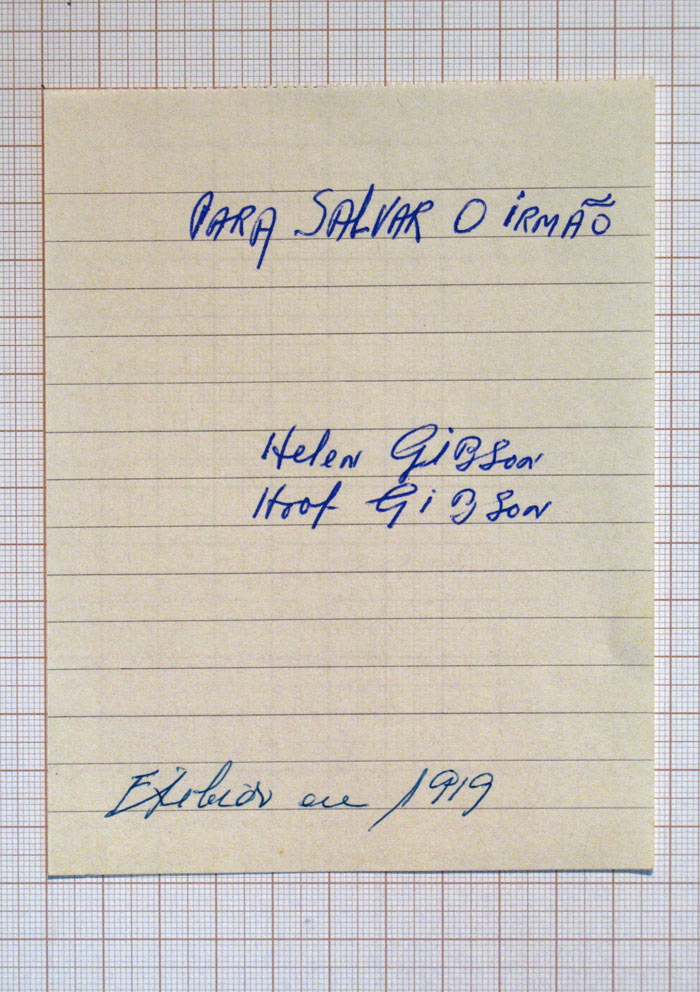 PARA SALVAR O IRMÃO
Helen GIBSON
Hoot GIBSON
Exibido em 1919